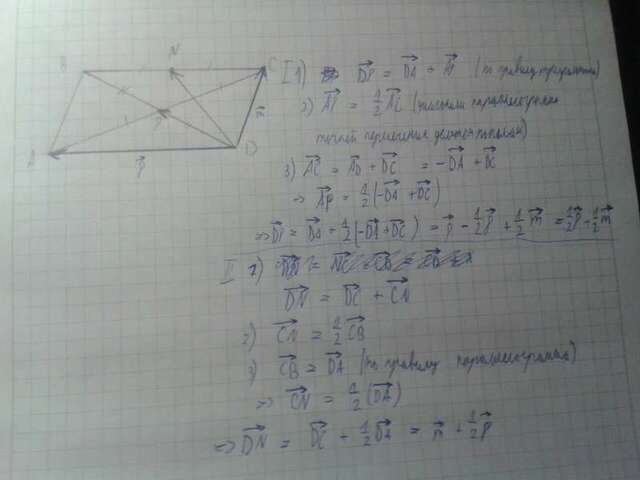 B N C
A P D
p⃗ m⃗
I 1) DP⃗ = DA⃗ + AP⃗ (по правилу треугольника)
2) AP⃗ = 1/2 AC⃗ (диагонали параллелограмма
точкой пересечения делятся пополам)
3) AC⃗ = AD⃗ + DC⃗ = -DA⃗ + DC⃗
=> AP⃗ = 1/2(-DA⃗ + DC⃗)
=> DP⃗ = DA⃗ + 1/2(-DA⃗ + DC⃗) = p⃗ - 1/2p⃗ + 1/2m⃗ = 1/2p⃗ + 1/2m⃗
II 1)
DN⃗ = DC⃗ + CN⃗
2) CN⃗ = 1/2 CB⃗
3) CB⃗ = DA⃗ (по правилу параллелограмма)
=> CN⃗ = 1/2(DA⃗)
=> DN⃗ = DC⃗ + 1/2DA⃗ = m⃗ + 1/2p⃗